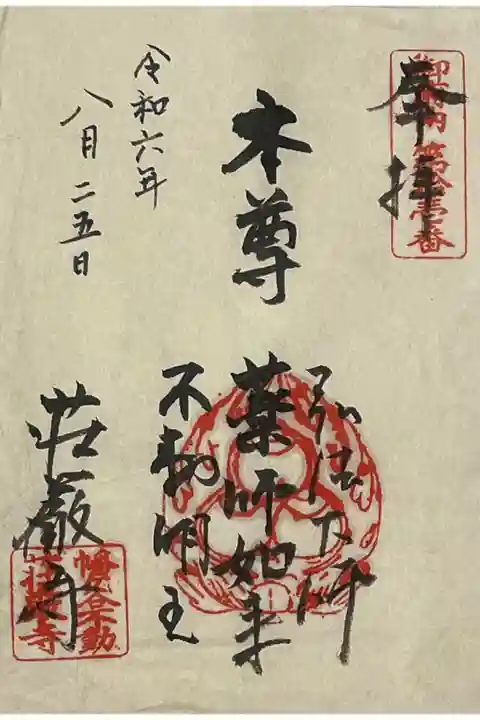 奉拝
御府内第拾壱番
本尊
弘法大師
薬師如来
不動明王
令和六年
八月二五日
荘厳寺
幡ヶ谷不動
荘厳寺